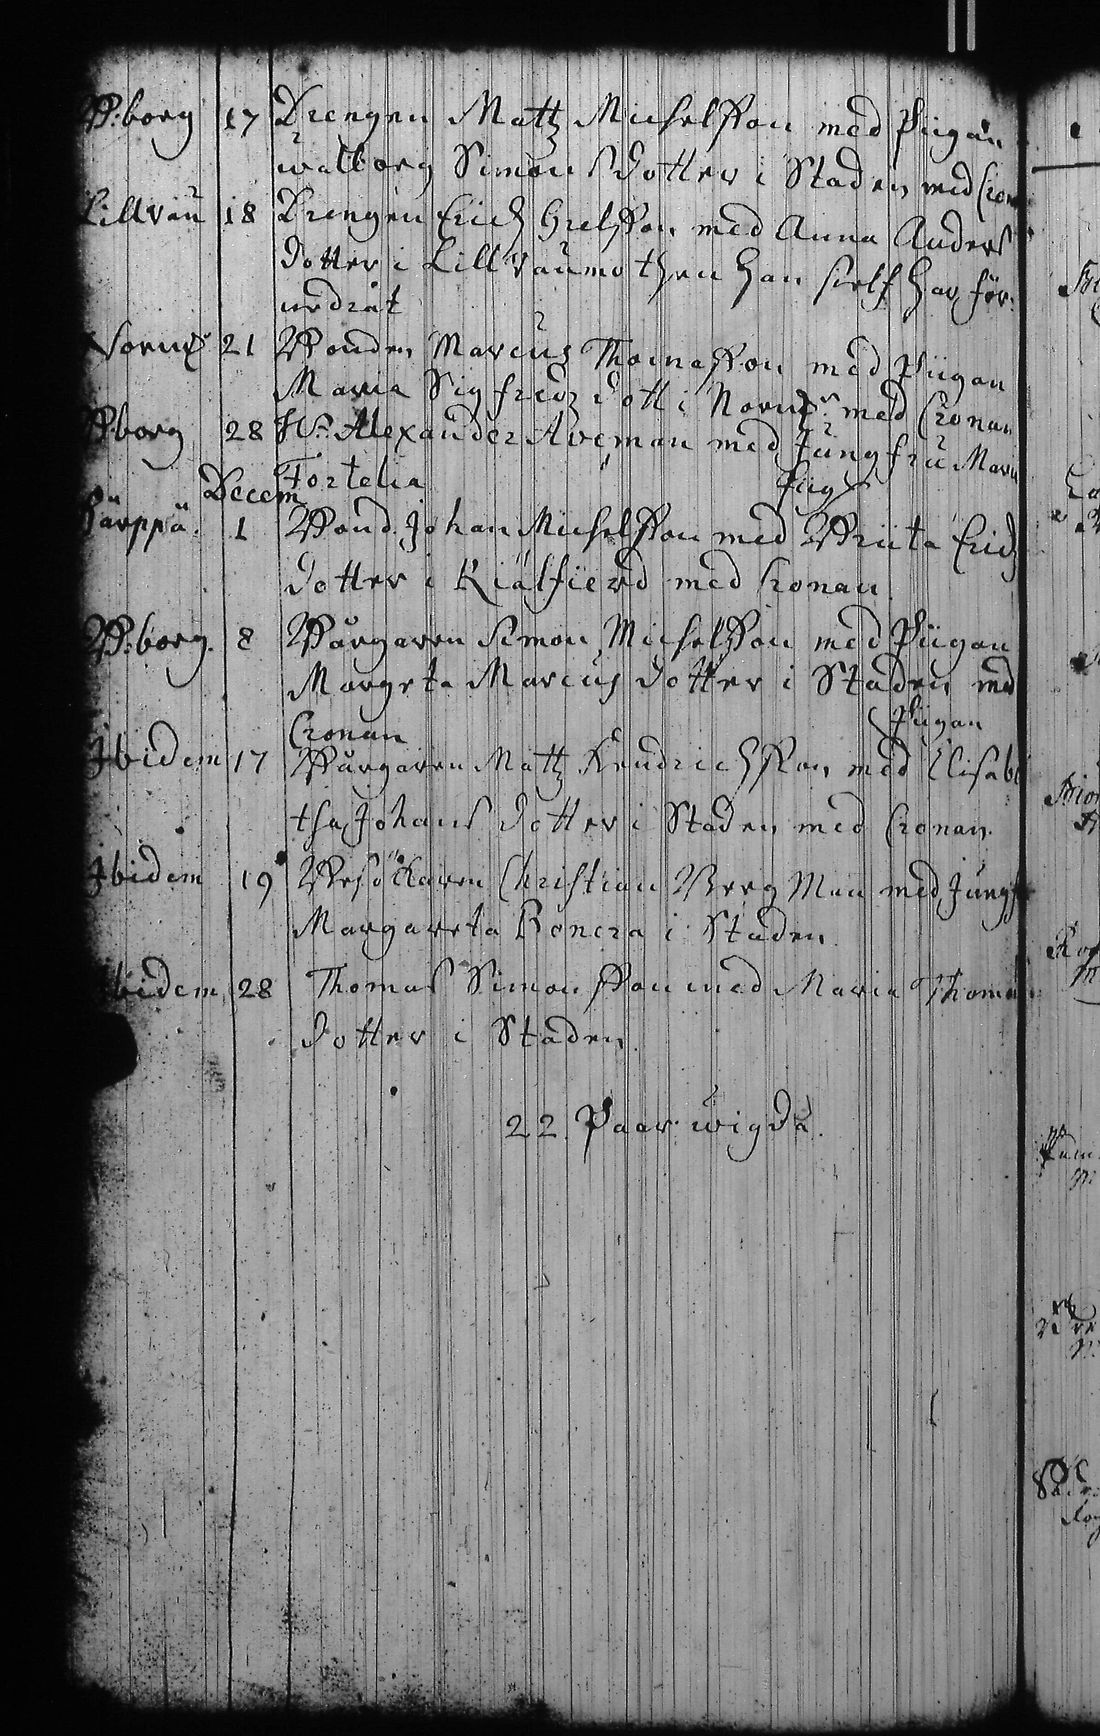 B:borg 17 Drengen Matz Michelsson med Piigan
Walborg Simons dotter i Staden med Cron
Lillrau 18 Drengen Erich Grelsson med Anna Anders
dotter i Lillraumo then han sielf har för-
kedrat
Norm: 21 Bonden Marcus Thomasson med Piigan
Maria Sigfredz dott: i Norm: med Cronan
B:borg 28 Hr: Alexander Aveman med Jungfru Maria
Fortelia
Decem
Piig
Pärppä 1 Bond. Johan Michelsson med Briita Erichz
dotter i Kiälfierd med Cronan
B:borg. 8 Bårgaren Simon Michelsson med Piigan
Margeta Marcus dotter i Staden med
Cronan
Piigan
Ibidem 17 Bårgaren Matz Hendrichsson med Elisabe
tha Johans dotter i Staden med Cronan.
Ibidem 19 Besökaren Christian Bergman med Jungf
Margareta Roncra i Staden
Ibidem 28 Thomas Simonsson med Maria Thomas
dotter i Staden
22 Paar wigda.